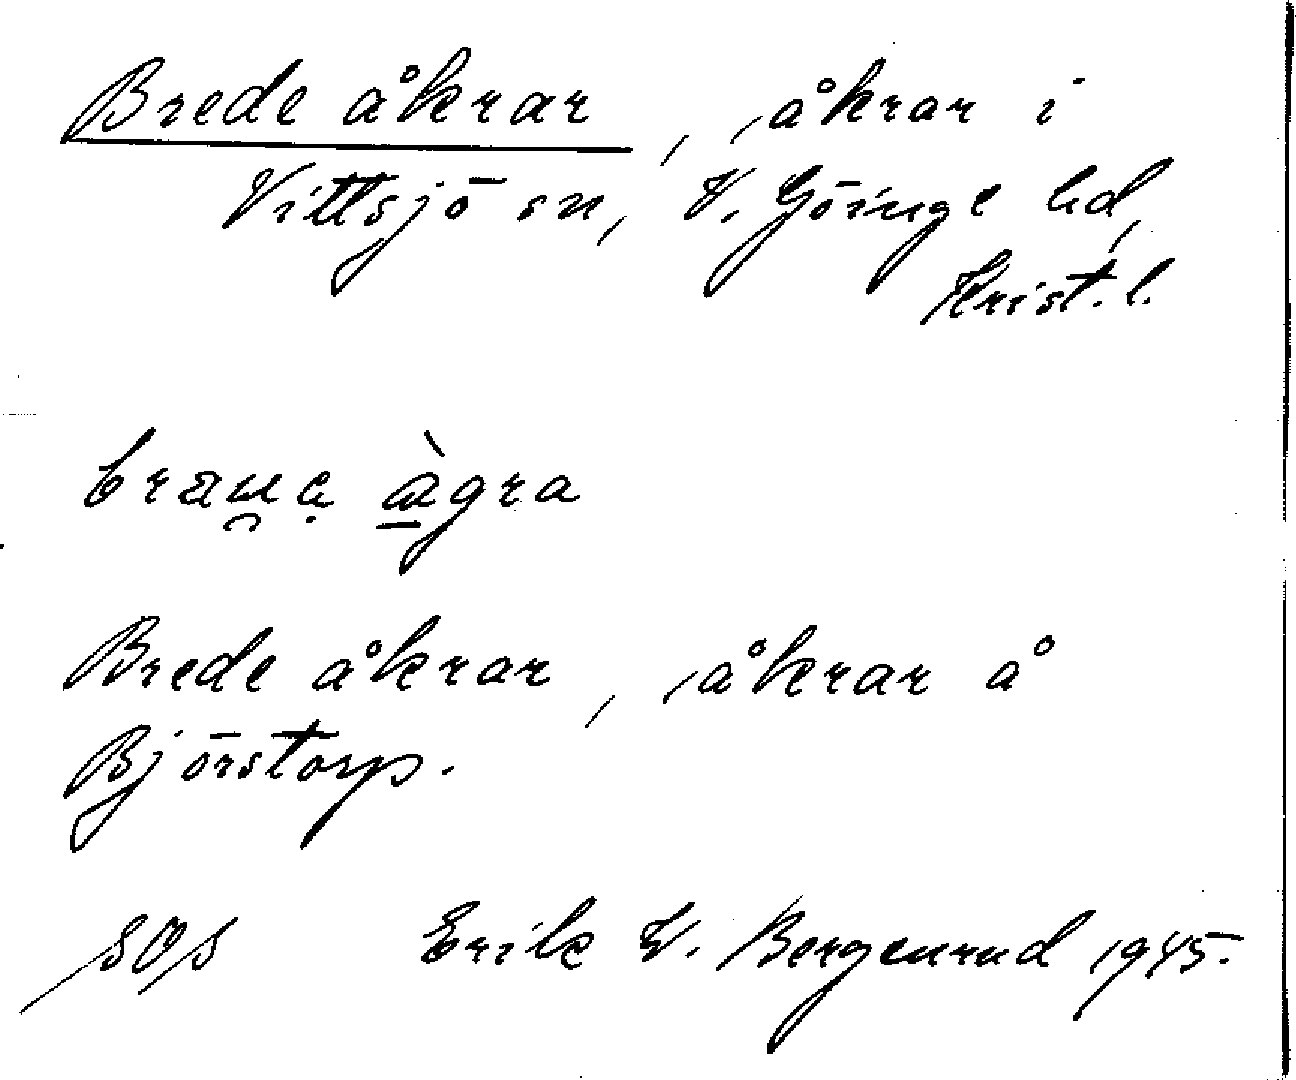 Brede åkrar, åkrar i
Vittsjö sn, V. Göinge hd,
Krist. l.
Brede åkrar, åkrar å
Björstorp.
SOS Erik W. Bergenrud 1945.